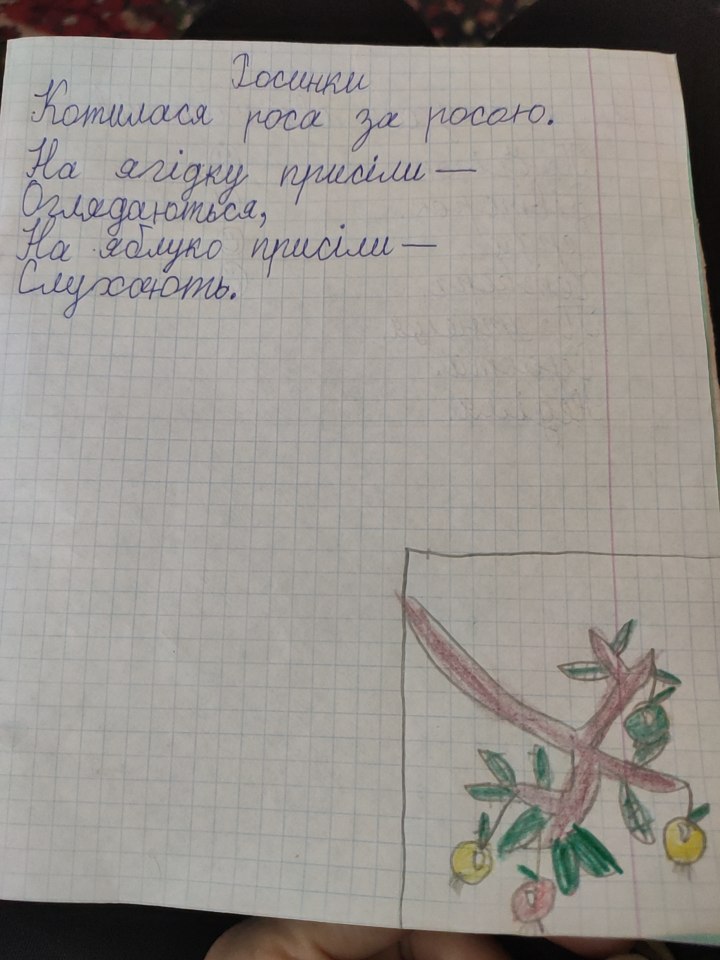 Росинки
Котилася роса за росою.
На ягідку присіли —
Оглядаються,
На яблуко присіли —
Слухають.